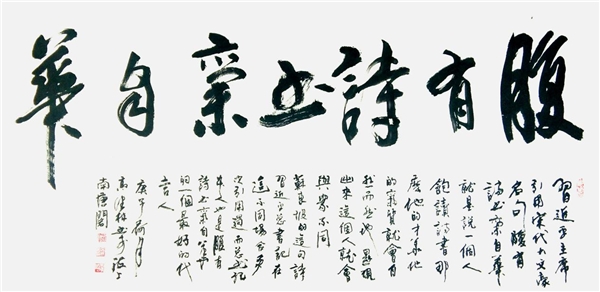 腹有詩书氣自華
習近平主席
引用宋代大文豪
名句腹有
詩书氣自華
就是說一個人
飽讀詩書那
麽他的才華他
的氣質就會有
然地
出來這個人就會
與衆不同
蘇東坡的這句詩
習近平总書記在
不同場合多
次引用過而总书记
本人也是腹有
詩书氣自華
的一個最好的代
言人
庚子荷月
高 书於 上
南唐閣